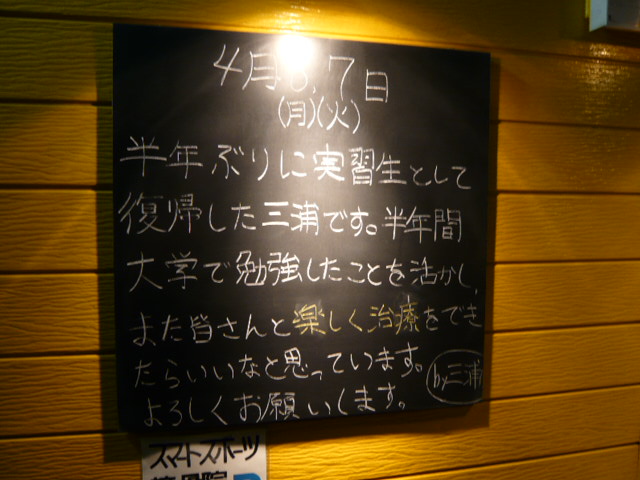 4月6,7日
(月)(火)
半年ぶりに実習生として
復帰した三浦です。半年間
大学で勉強したことを活かし、
また皆さんと楽しく治療をでき
たらいいなと思っています。
よろしくお願いします。
by三浦
スマートスポーツ